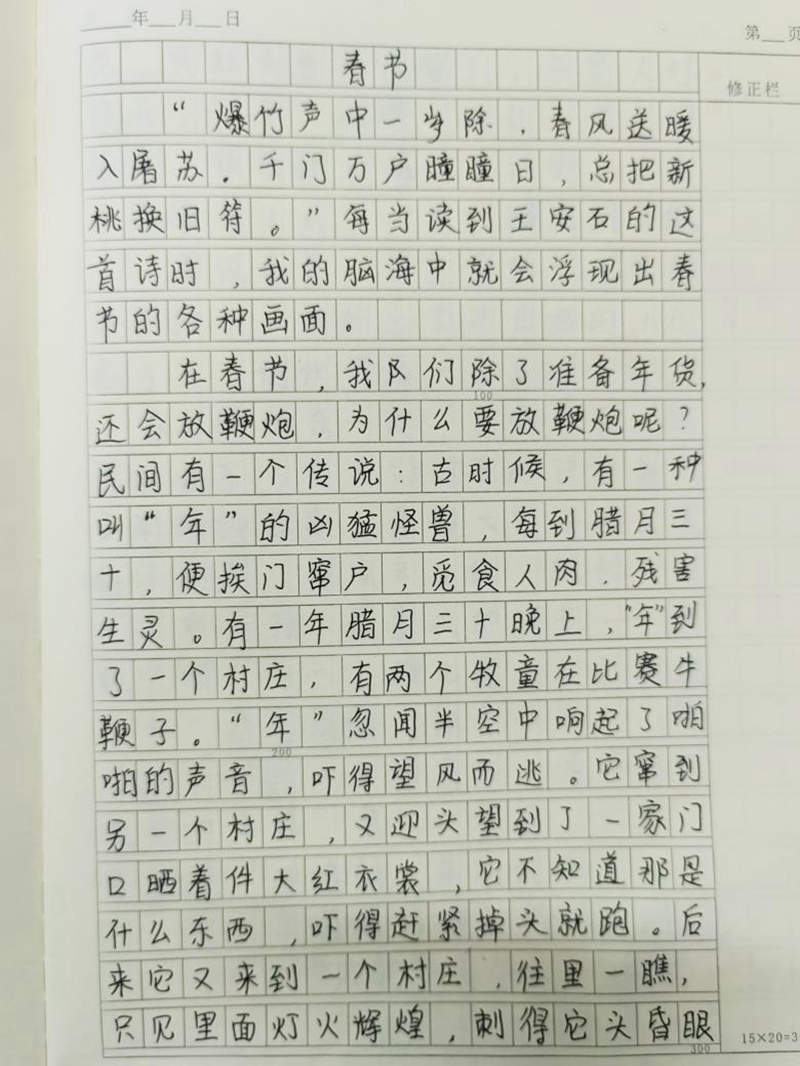 年 月 日
第 页
修正栏
春节
“爆竹声中一岁除，春风送暖
入屠苏。千门万户瞳瞳日，总把新
桃换旧符。”每当读到王安石的这
首诗时，我的脑海中就会浮现出春
节的各种画面。
在春节，我们除了准备年货，
还会放鞭炮，为什么要放鞭炮呢？
民间有一个传说：古时候，有一种
叫“年”的凶猛怪兽，每到腊月三
十，便挨门窜户，觅食人肉，残害
生灵。有一年腊月三十晚上，“年”到
了一个村庄，有两个牧童在比赛牛
鞭子。“年”忽闻半空中响起了啪
啪的声音，吓得望风而逃。它窜到
另一个村庄，又迎头望到了一家门
口晒着件大红衣裳，它不知道那是
什么东西，吓得赶紧掉头就跑。后
来它又来到一个村庄，往里一瞧，
只见里面灯火辉煌，刺得它头昏眼
100
200
300
15×20=3